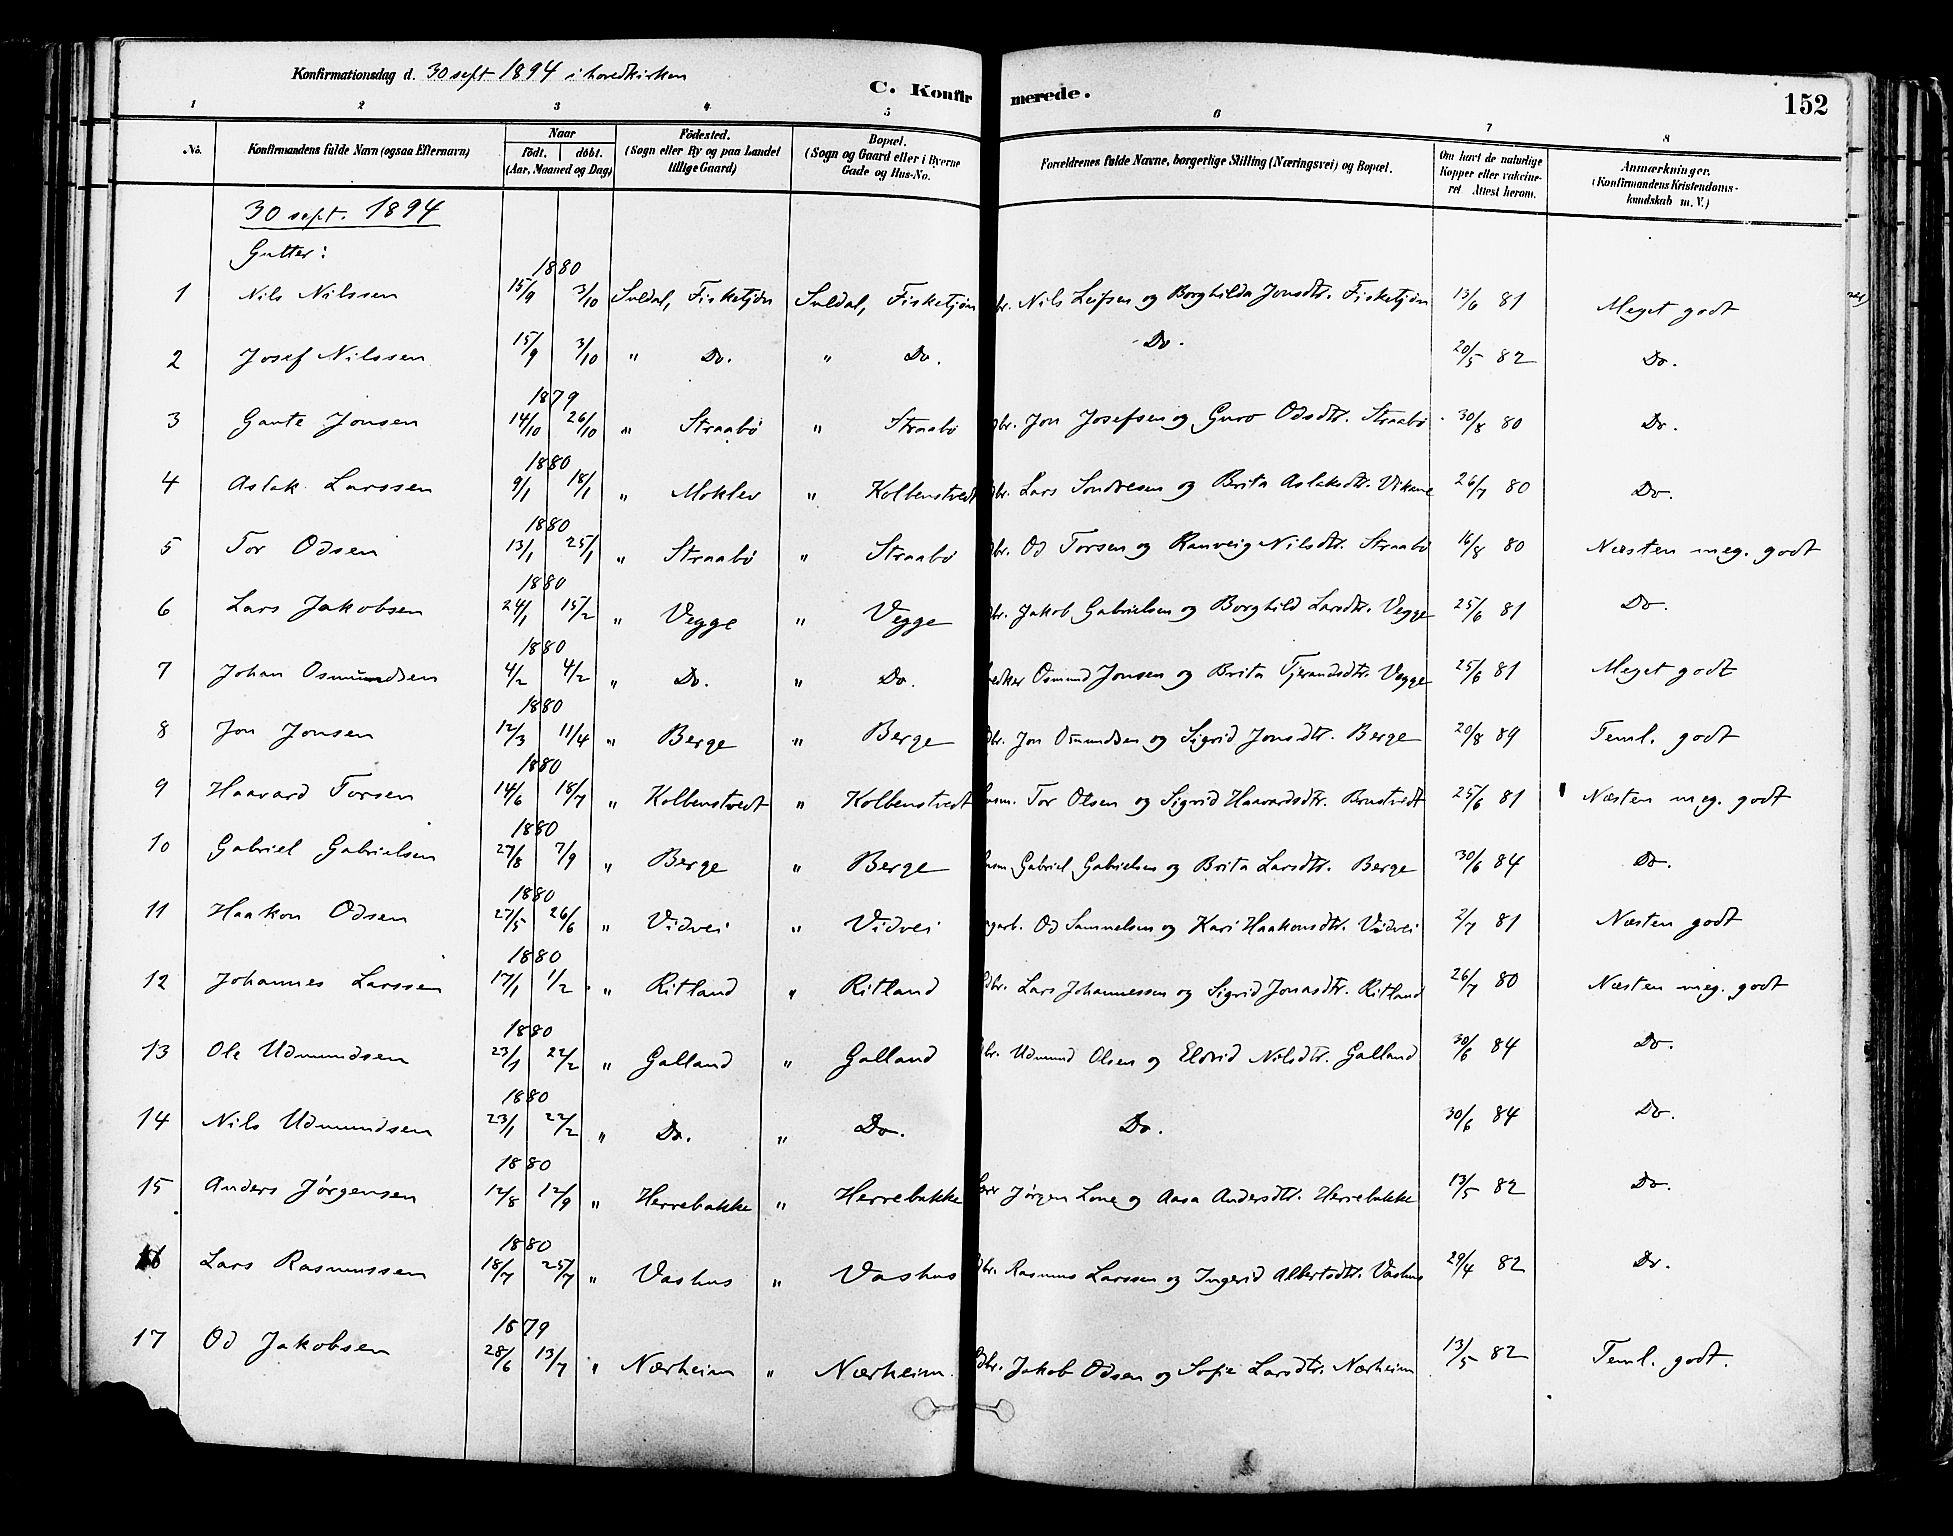 Konfirmationsdag d. 30 sept 1894 i hovedkirken
C. Konfirmerede.
152
1 2 3 4 5 6 7 8
No. Konfirmandens fulde Navn (ogsaa Efternavn) Naar født. døbt. (Aar, Maaned og Dag) Födested. (Sogn eller By og paa Landet tillige Gaard) Bopæl. (Sogn og Gaard eller i Byerne Gade og Hus-No. Forældrenes fulde Navne, borgerlige Stilling (Næringsvei) og Bopæl. Om havt de naturlige Kopper eller vakcineret Attest herom. Anmærkninger. (Konfirmandens Kristendomskundskab m. V.)
30 sept. 1894
Gutter:
1880
1 Nils Nilssen 15/9 3/10 Suldal, Fisketjøn Suldal, Fisketjøn br. Nils Leifsen og Borghilda Jonsdtr. Fisketjøn 13/6 81 Meget godt
2 Josef Nilssen 15/9 3/10 " Do. " Do. Do. 20/5 82 Do.
1879
3 Gaute Jonsen 14/10 26/10 " Straabø " Straabø br. Jon Josefsen og Guro Odsdtr. Straabø 30/8 80 Do.
1880
4 Aslak Larssen 9/1 18/1 " Moklev " Kolbenstvedt dbr. Lars Sondresen og Brita Aslaksdtr. Vikane 26/7 80 Do.
1880
5 Tor Odsen 13/1 25/1 " Straabø " Straabø br. Od Torsen og Ranveig Nilsdtr. Straabø 16/8 80 Næsten meg. godt
1880
6 Lars Jakobsen 24/1 15/2 " Vegge " Vegge br. Jakob Gabrielsen og Borghild Larsdtr. Vegge 25/6 81 Do.
1880
7 Johan Osmundsen 4/2 4/2 " Do. " Do. Osmund Jonsen og Brita Tjerandsdtr. Vegge 25/6 81 Meget godt
1880
8 Jon Jonsen 12/3 11/4 " Berge " Berge dbr. Jon Osmundsen og Sigrid Jonsdtr. Berge 20/8 89 Teml. godt
1880
9 Haavard Torsen 14/6 18/7 " Kolbenstvedt " Kolbenstvedt usm. Tor Olsen og Sigrid Haavardsdtr. Brustvedt 25/6 81 Næsten meg. godt
1880
10 Gabriel Gabrielsen 27/8 7/9 " Berge " Berge usm Gabriel Gabrielsen og Brita Larsdtr. Berge 30/6 84 Do.
1880
11 Haakon Odsen 27/5 26/6 " Vidvei " Vidvei garb. Od Samuelsen og Kari Haakonsdtr. Vidvei 2/7 81 Næsten godt
1880
12 Johannes Larssen 17/1 1/2 " Ritland " Ritland dbr. Lars Johannessen og Sigrid Jonasdtr. Ritland 26/7 80 Næsten meg. godt
1880
13 Ole Udmundsen 23/1 22/2 " Galland " Galland br. Udmund Olsen og Eldrid Nilsdtr. Galland 30/6 84 Do.
1880
14 Nils Udmundsen 23/1 22/2 " Do. " Do. Do. 30/6 84 Do.
1880
15 Anders Jørgensen 12/8 12/9 " Herrebakke " Herrebakke Jørgen Lone og Aasa Andersdtr. Herrebakke 13/5 82 Do.
1880
16 Lars Rasmussen 18/7 25/7 " Vashus " Vashus dbr. Rasmus Larssen og Ingerid Albertsdtr. Vashus 29/4 82 Do.
1879
17 Od Jakobsen 28/6 13/7 " Nærheim " Nærheim. dbr. Jakob Odsen og Sofie Larsdtr. Nærheim 13/5 82 Teml. godt.